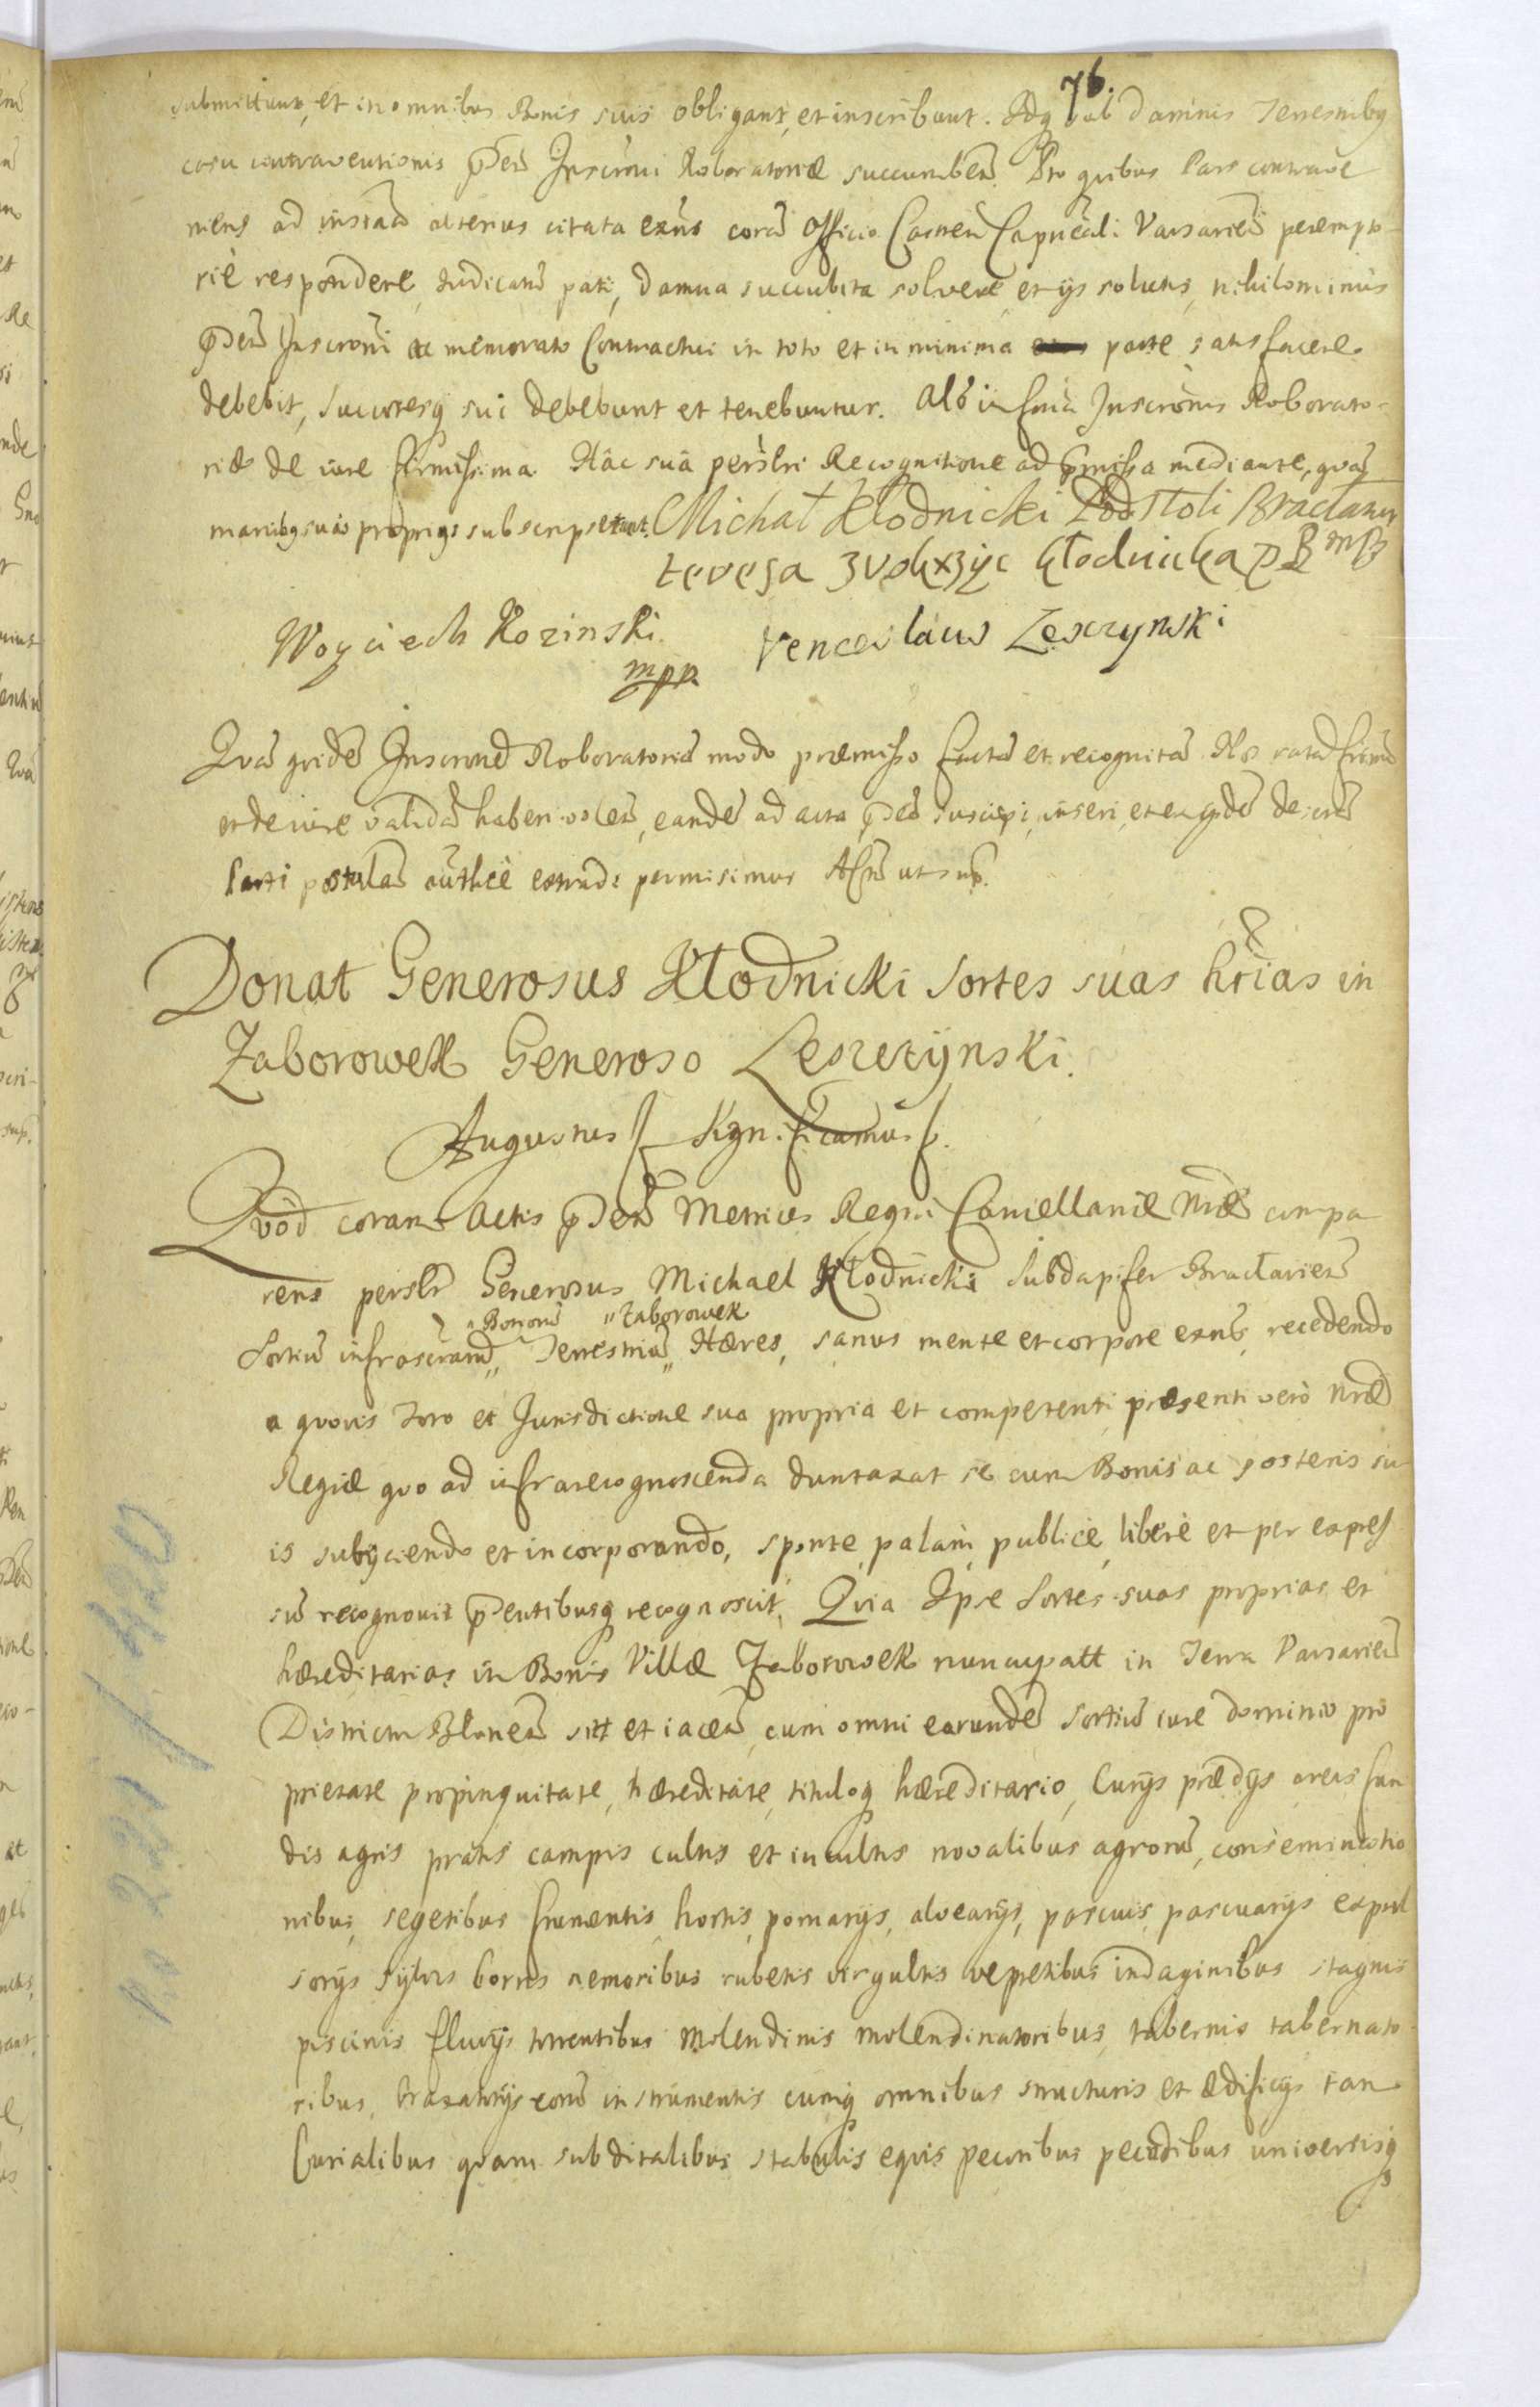 76.
submittunt, et in omnibus Bonis suis obligant, et inscribunt. Idq sub damnis Terrestribq
casu contraventionis pñtis Inscrōni Roboratoriæ succumbeñ. Pro quibus Pars contrave
niens ad instāā alterius citata exñs corā Officio Castreñ Capñeali Varsavieñ perempto-
riè respondere, iudicatū pati, damna succubita solvere et ijs solutis, nihilominùs
pñti Inscrōni ac memorato Contractui in toto et in minima parte satisfacere
debebit, Succroresq sui debebunt et tenebuntur. Alō in Inscrōnis Roborato-
riæ de iure firmissima. Hâc suâ persħri Recognitione ad præmissa mediante, quā
manibq suis proprijs subscripserunt. Michał Kłodnicki Podstoli Bracławs
teresa Kłodnicka
Woyciech Rozinski mpp Venceslaus Leszczynski
Quā quidē Inscrōnē Roboratoriā modo præmisso factā et recognitā Nos ratā firmā
et de iure validā haberi voleñ, eandē ad acta pñtia suscipi, inseri, et ex ijsdē
Parti postulañ authcè extradi permisimus Actū ut sup.
Donat Generosus Kłodnicki Sortes suas hrias in
Zaborowek Generoso Leszczÿnski.
Augustus Significamus
Quod coram Actis pñtibus Metrices Regni Cancellariæ Nræ compa
rens persħr Generosus Michael Kłodnicki Subdapifer Bracłavieñ
Bonorū Zaborowek
Sortiū infrascrarū Terrestriū Hæres, sanus mente et corpore exñs, recedendo
a quovis Foro et Jurisdictione sua propria et competenti, præsenti verò Nræ
Regiæ quo ad infrarecognoscenda duntaxat se cum Bonis ac posteris su
is subijciendo et incorporando, sponte, palam, publicè, liberè et per expres
sū recognovit pñtibusq recognoscit, Quia Ipse Sortes suas proprias et
hæreditarias in Bonis Villæ Zaborowek nuncupatt in Terra Varsavieñ
Districtu Błoneñ sitt et iaceñ, cum omni earundē sortiū iure dominio pro
prietate propinquitate, hæreditate, tituloq hæreditario, Curijs prædijs areis fun
dis agris pratis campis cultis et incultis novalibus agrorū, conseminatio
nibus, segetibus frumentis, hortis, pomarijs, alvearijs, pascuis, pascuarijs expul
sorijs sylvis borris nemoribus rubetis virgultis vepretibus indaginibus stagnis
piscinis fluvijs torrentibus Molendinis molendinatoribus, tabernis tabernato-
ribus, braxatorijs eorū instrumentis cumq omnibus structuris et ædificijs tam
Curialibus quam subditalibus stabulis equis pecoribus pecudibus universisq